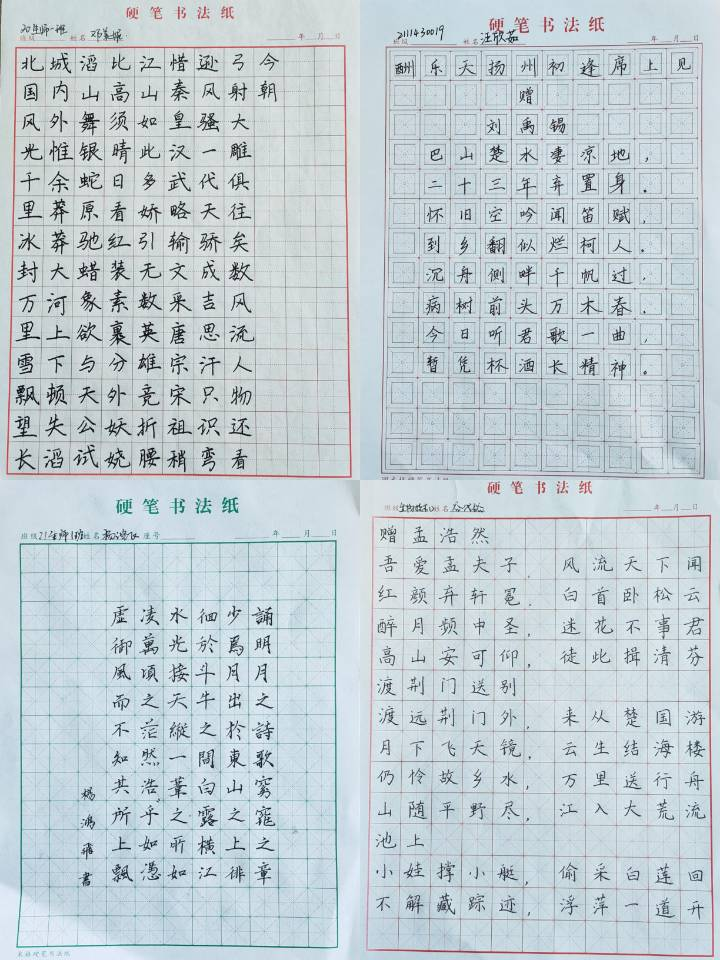 硬笔书法纸
班级 20生师一班 姓名 年 月 日
北国风光千里冰封万里雪飘望长
城内外惟余莽莽大河上下顿失滔
滔山舞银蛇原驰蜡象欲与天公试
比高须晴日看红装素裹分外妖娆
江山如此多娇引无数英雄竞折腰
惜秦皇汉武略输文采唐宗宋祖稍
逊风骚一代天骄成吉思汗只识弯
弓射大雕俱往矣数风流人物还看
今朝
硬笔书法纸
班级 2111430019 姓名 汪欣茹 年 月 日
酬乐天扬州初逢席上见
赠
刘禹锡
巴山楚水凄凉地，
二十三年弃置身。
怀旧空吟闻笛赋，
到乡翻似烂柯人。
沉舟侧畔千帆过，
病树前头万木春。
今日听君歌一曲，
暂凭杯酒长精神。
硬笔书法纸
班级 21生师1班 姓名 座号 年 月 日
誦明月之詩歌窈窕之章
少焉月出於東山之上徘
徊於斗牛之間白露橫江
水光接天縱一葦之所如
凌萬頃之茫然浩乎如憑
虛御風而不知其所止飄
楊鴻飛書
米格硬笔书法纸
硬笔书法纸
班级 姓名 年 月 日
赠孟浩然
吾爱孟夫子，风流天下闻
红颜弃轩冕，白首卧松云
醉月频中圣，迷花不事君
高山安可仰，徒此揖清芬
渡荆门送别
渡远荆门外，来从楚国游
月下飞天镜，云生结海楼
仍怜故乡水，万里送行舟
山随平野尽，江入大荒流
池上
小娃撑小艇，偷采白莲回
不解藏踪迹，浮萍一道开